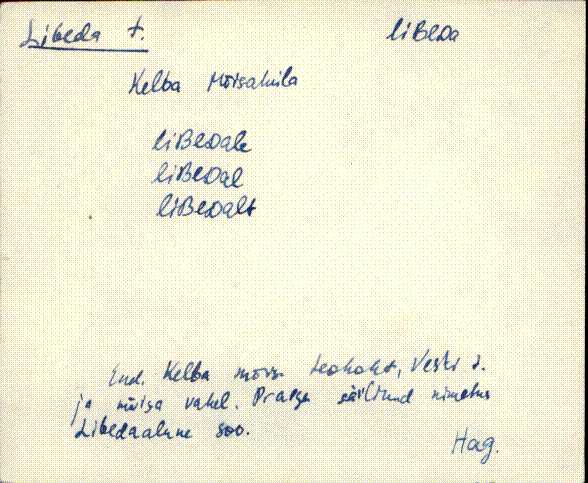 Libeda t. liBeDa
Kelba Mõisaküla
liBeDale
liBeDal
liBeDalt
End. Kelba mõisa teokoht, Veski t.
ja mõisa vahel. Praegu säilinud nimetus
Libedaalune soo.
Hag.